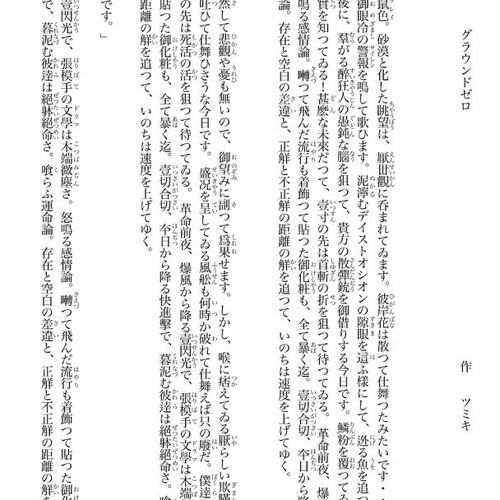 グラウンドゼロ 作 ツミキ
鼠色。砂漠と化した眺望は、厭世觀に呑まれてゐます。彼岸花は散つて仕舞つたみたいです・
御眼冷の警報を鳴して歌ひます。泥濘むデイストオシオンの隙眼を這ふ様にして、迯る魚を追つ
後に、羣がる醉狂人の愚鈍な腦を狙つて、貴方の散彈銃を御借りする今日です。鱗粉を覆つてゐ
實を知つてゐる！甚麼な未來だつて、壹寸の先は首斬の折を狙つて待つてゐる。革命前夜、爆風
鳴る感情論。囀つて飛んだ流行も着飾つて貼つた御化粧も、全て暴く迄。壹切合切、今日から降
論。存在と空白の差違と、正鮮と不正鮮の距離の鮮を追つて、いのちは速度を上げてゆく。
然して悲觀や憂も無いので、御望みに副つて爲果せます。しかし、喉に痞えてゐる厭らしい欺瞞
吐ひて仕舞ひさうな今日です。盛況を呈してゐる風船も何時か破れて仕舞えば只の廢だ。僕達
の先は死活の活を狙つて待つてゐる。革命前夜、爆風から降る壹閃光で、張模手の文學は木端
御化粧も、全て暴く迄。壹切合切、今日から降る快進擊で、暮泥む彼達は絕躰絕命さ。
距離の鮮を追つて、いのちは速度を上げてゆく。
です。」
壹閃光で、張模手の文學は木端微塵さ。怒鳴る感情論。囀つて飛んだ流行も着飾つて貼つた御化
で、暮泥む彼達は絕躰絕命さ。喰らふ運命論。存在と空白の差違と、正鮮と不正鮮の距離の鮮